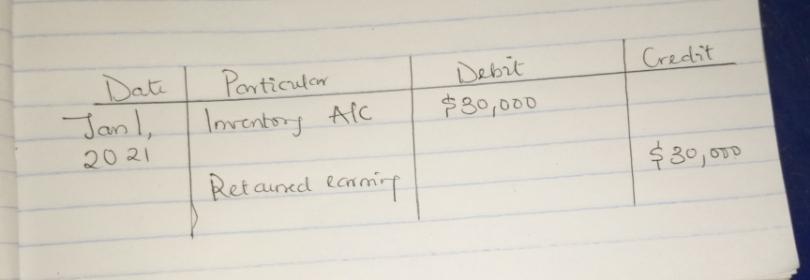 Date Particular Debit Credit
Jan 1, Inventory A/C $30,000
2021
$30,000
Retained earning